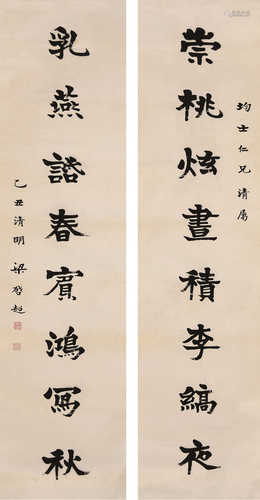 均士仁兄清属
崇桃炫晝積李縞夜
乳燕諮春賓鴻寫秋
乙丑清明
梁啓超